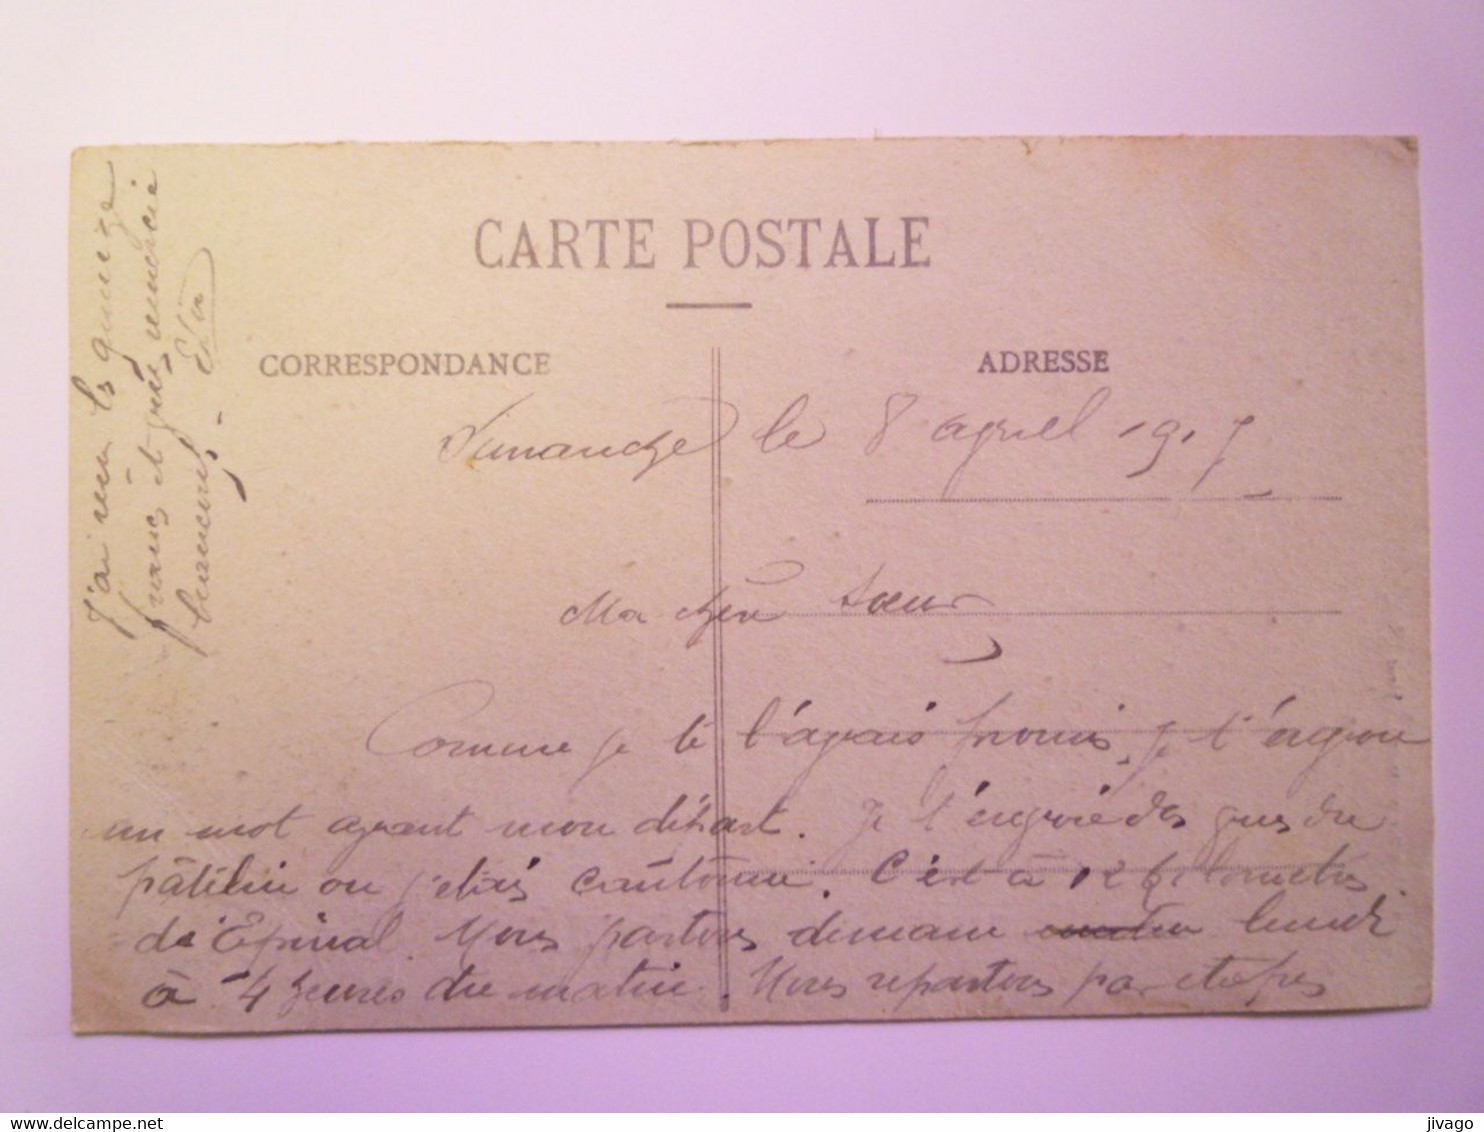 CARTE POSTALE
CORRESPONDANCE
ADRESSE
Dimanche le 8 avril 1917
Ma chère soeur
Comme je te l'avais promis, je t'envoie
un mot avant mon départ. Je t'envoie des vues du
patelin ou j'etais cantonné. C'est à 12 kilometres
de Epinal. Nous partons demain matin lundi
à 4 heures du matin. Nous repartons par etapes
J'ai reçu les quinze
francs et vous remercie
beaucoup.
jivago